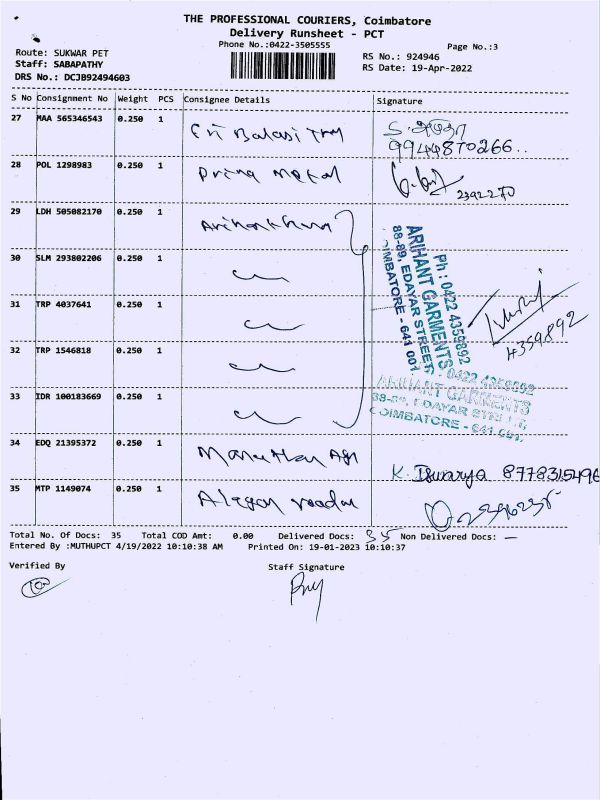 THE PROFESSIONAL COURIERS, Coimbatore
Delivery Runsheet - PCT
Phone No.:0422-3505555
Page No.:3
Route: SUKWAR PET
Staff: SABAPATHY
DRS No.: DCJB92494603
RS No.: 924946
RS Date: 19-Apr-2022
S No Consignment No Weight PCS Consignee Details Signature
27 MAA 565346543 0.250 1 Sri Balaji
9944870266..
28 POL 1298983 0.250 1 Metal
2392270
29 LDH 505082170 0.250 1
30 SLM 293802206 0.250 1
31 TRP 4037641 0.250 1
32 TRP 1546818 0.250 1
33 IDR 100183669 0.250 1
Ph : 0422 4359892
ARIHANT GARMENTS
88-89, EDAYAR STREET,
COIMBATORE - 641 001.
4359892
Ph : 0422 4359892
ARIHANT GARMENTS
88-89, EDAYAR STREET,
COIMBATORE - 641 001.
34 EDQ 21395372 0.250 1 K. 8778315496
35 MTP 1149074 0.250 1
Total No. Of Docs: 35 Total COD Amt: 0.00 Delivered Docs: 35 Non Delivered Docs: —
Entered By :MUTHUPCT 4/19/2022 10:10:38 AM Printed On: 19-01-2023 10:10:37
Verified By Staff Signature